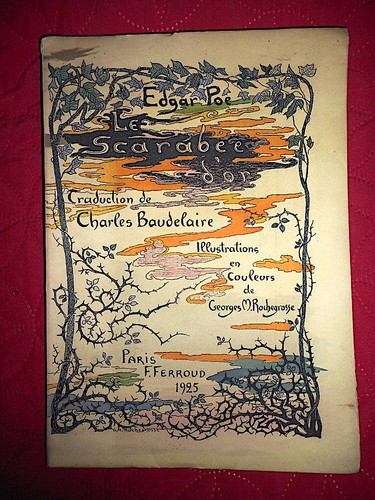 Edgar Poe
Le
Scarabée
d'or
Traduction de
Charles Baudelaire
Illustrations
en
Couleurs
de
Georges M. Rochegrosse
Paris
F. FERROUD
1925